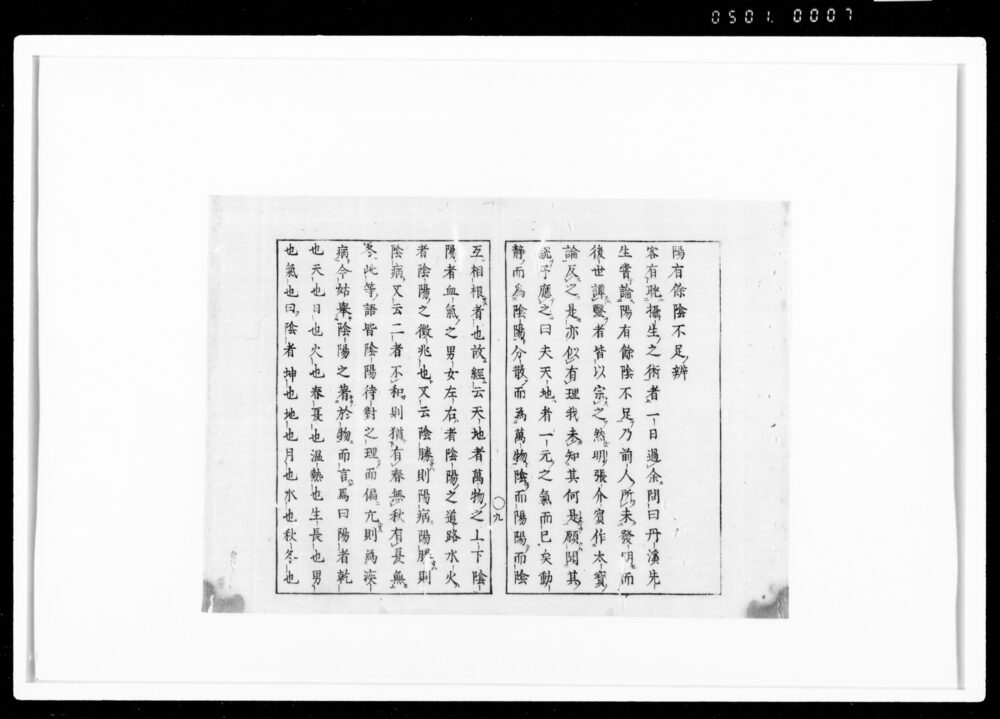 0501. 0007
陽有餘陰不足辨
客有耽攝生之術者一日過余問曰丹溪先
生嘗論陽有餘陰不足乃前人所未發明而
後世譚醫者皆以宗之然明張介賓作太寶
論反之是亦似有理我未知其何是願聞其
說予應之曰夫天地者一元之氣而已矣動
靜而為陰陽分散而為萬物陰而陽陽而陰
九
互相根者也故經云天地者萬物之上下陰
陽者血氣之男女左右者陰陽之道路水火
者陰陽之徵兆也又云陰勝則陽病陽勝則
陰病又云二者不和則猶有春無秋有夏無
冬此等語皆陰陽待對之理而偏亢則為疾
病今姑舉陰陽之著於物而言焉曰陽者乾
也天也日也火也春夏也溫熱也生長也男
也氣也曰陰者坤也地也月也水也秋冬也